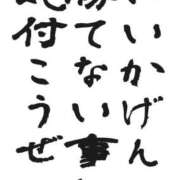 いかげん
てない事
付こうぜ